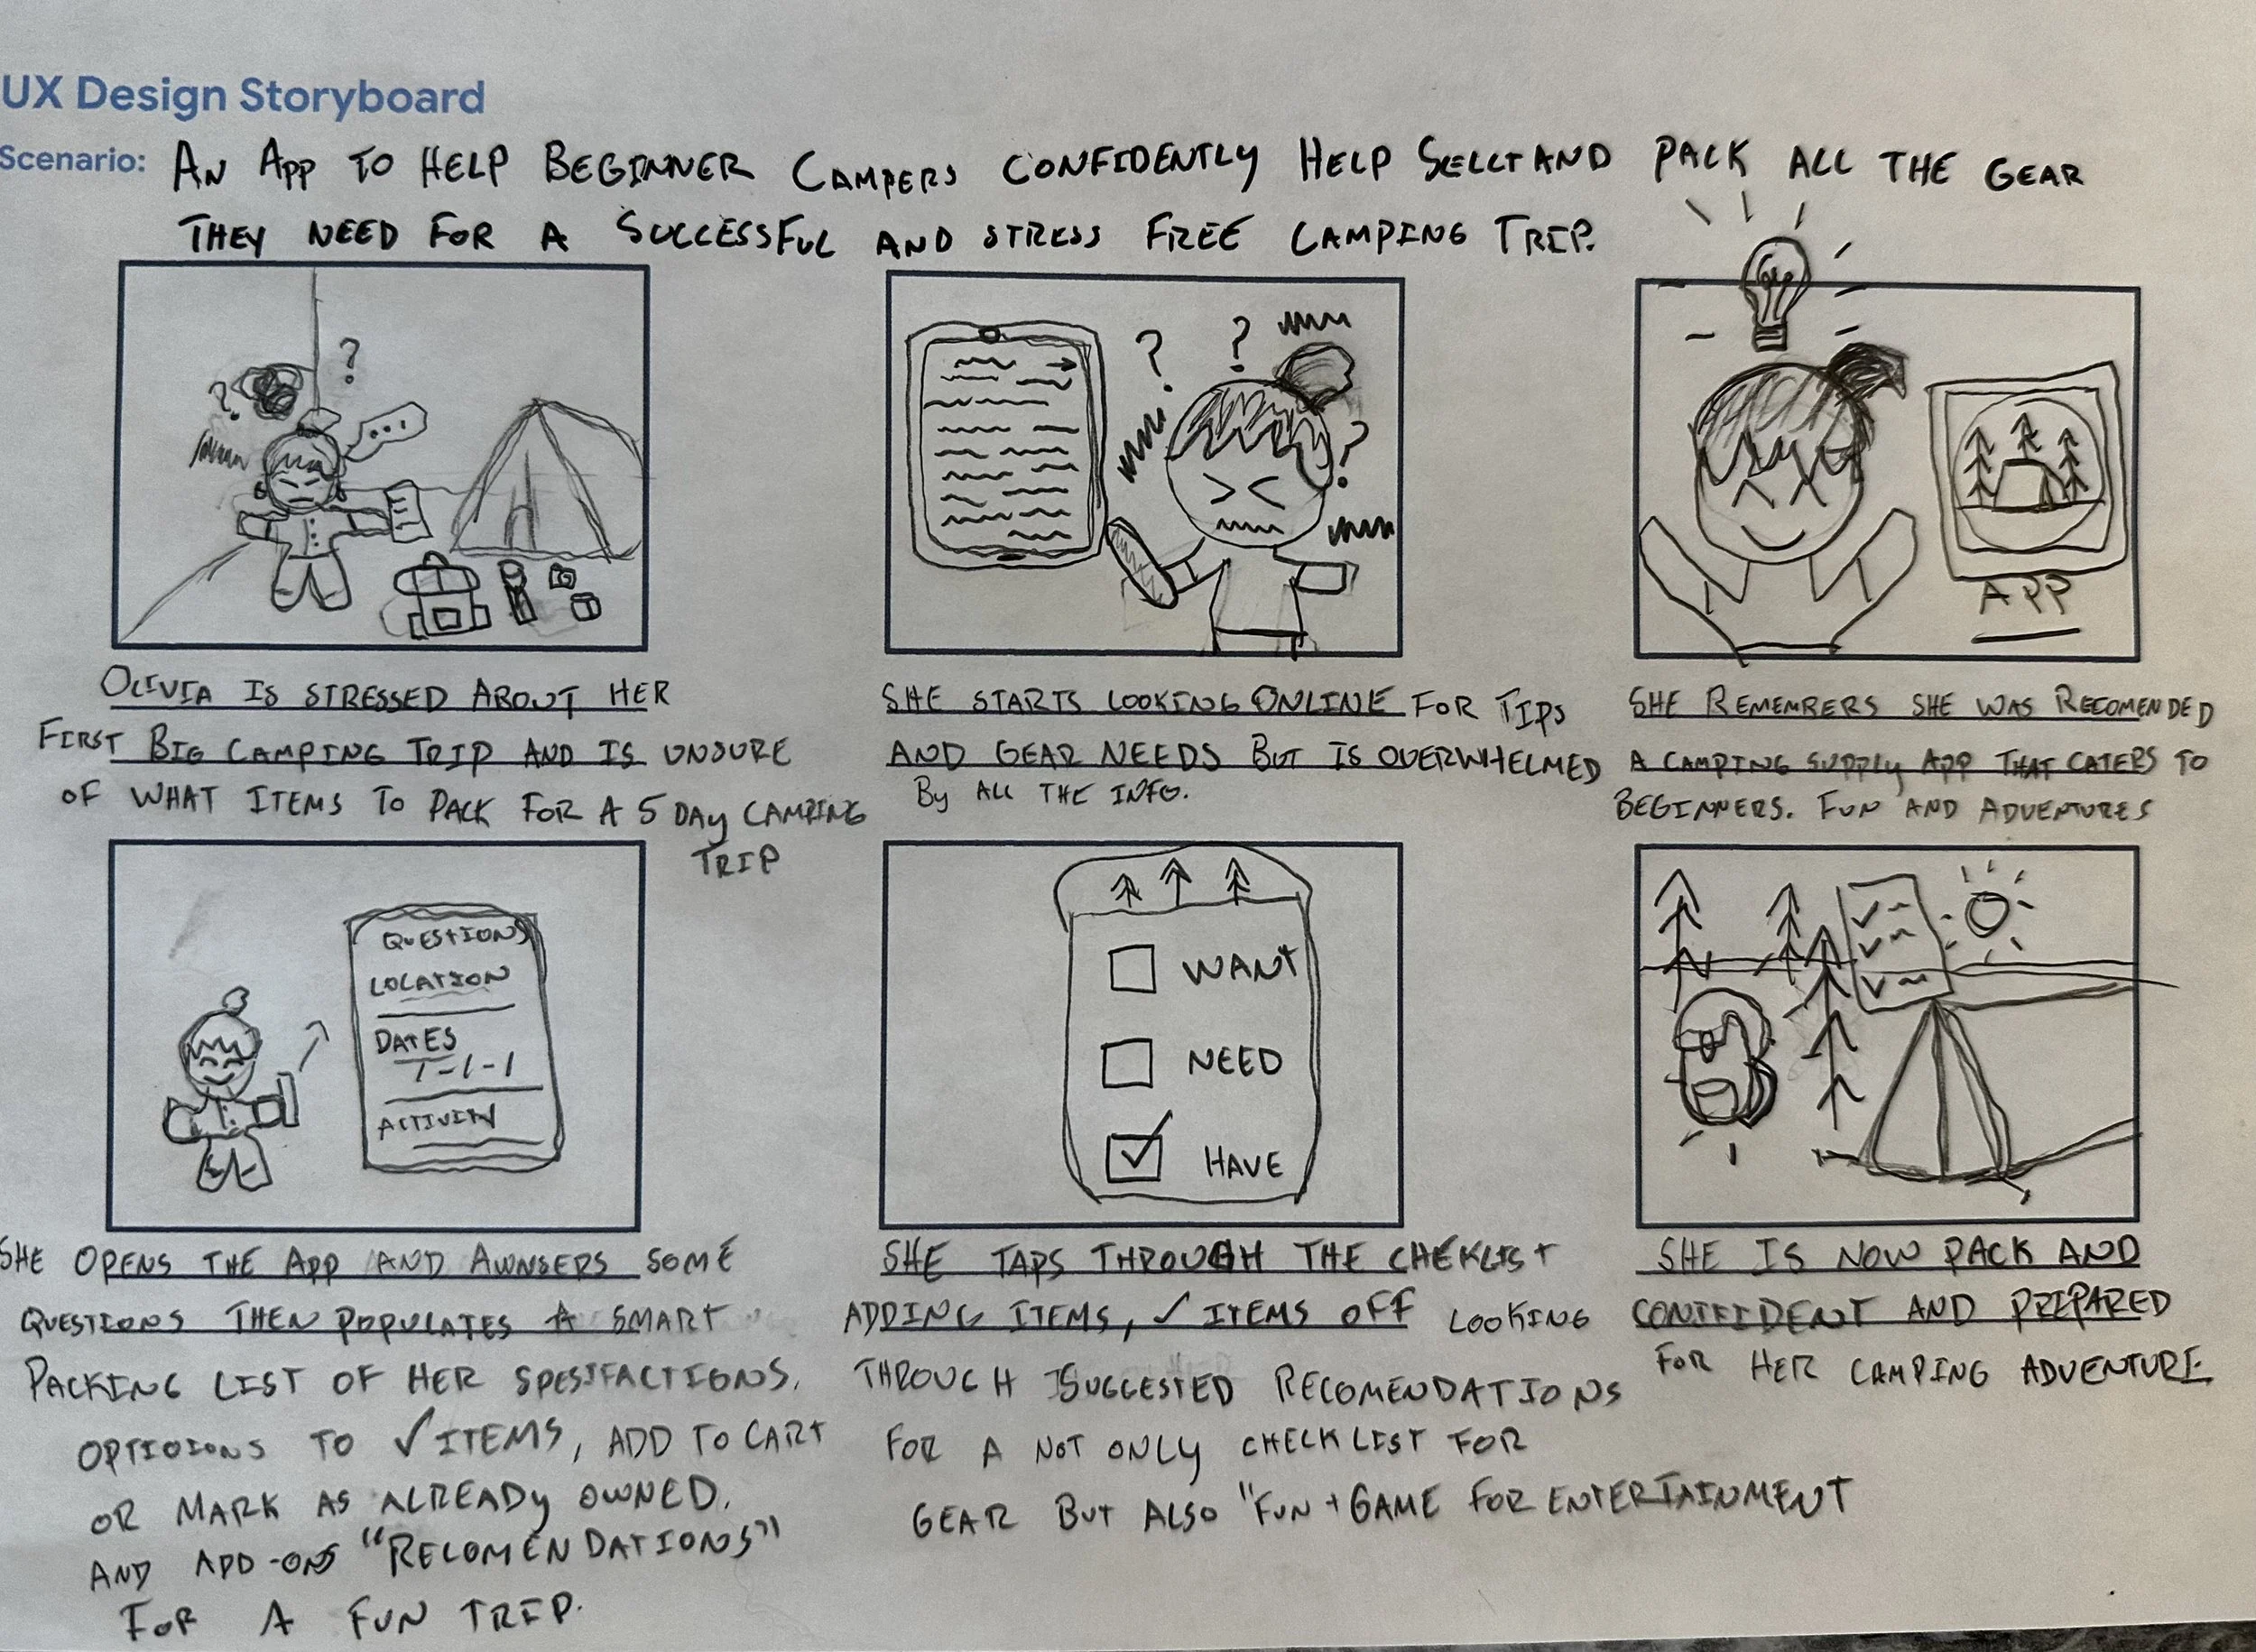 UX Design Storyboard
Scenario: AN APP TO HELP BEGINNER CAMPERS CONFIDENTLY HELP SELLT AND PACK ALL THE GEAR
THEY NEED FOR A SUCCESSFUL AND STRESS FREE CAMPING TRIP.
?
?
...
OLIVIA IS STRESSED ABOUT HER
FIRST BIG CAMPING TRIP AND IS UNSURE
OF WHAT ITEMS TO PACK FOR A 5 DAY CAMPING
TRIP
?
?
?
SHE STARTS LOOKING ONLINE FOR TIPS
AND GEAR NEEDS BUT IS OVERWHELMED
BY ALL THE INFO.
APP
SHE REMEMBERS SHE WAS RECOMENDED
A CAMPING SUPPLY APP THAT CATERS TO
BEGINNERS. FUN AND ADVENTURES
QUESTIONS
LOCATION
DATES
7-1-1
ACTIVITY
SHE OPENS THE APP AND AWNSERS SOME
QUESTIONS THEN POPULATES A SMART
PACKING LIST OF HER SPESIFACTIONS.
OPTIOIONS TO ✓ ITEMS, ADD TO CART
OR MARK AS ALREADY OWNED.
AND ADD-ONS "RECOMENDATIONS"
FOR A FUN TRIP.
WANT
NEED
HAVE
SHE TAPS THROUGH THE CHEKLIST
ADDING ITEMS, ✓ ITEMS OFF LOOKING
THROUGH SUGGESTED RECOMENDATIONS
FOR A NOT ONLY CHECKLIST FOR
GEAR BUT ALSO "FUN + GAME FOR ENTERTAINMENT
SHE IS NOW PACK AND
CONFIDENT AND PREPARED
FOR HER CAMPING ADVENTURE.